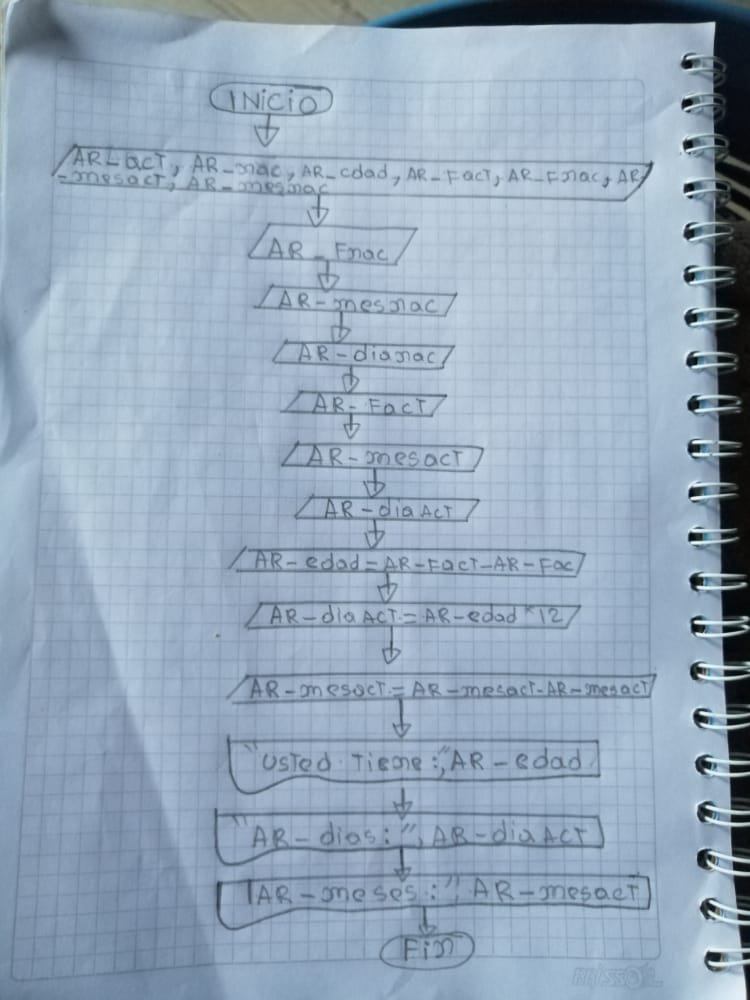 INICIO
AR-acT, AR_nac, AR_edad, AR_FacT, AR_Fnac, AR
-mesacT, AR_mesnac
AR_Fnac
AR-mesnac
AR-dianac
AR-FacT
AR-mesacT
AR-diaAcT
AR-edad=AR-FacT-AR-Fac
AR-diaAcT=AR-edad*12
AR-mesacT=AR-mesacT-AR-mesacT
"usTed Tiene:",AR-edad
"AR-dias:",AR-diaAcT
"AR-meses:",AR-mesacT
Fin